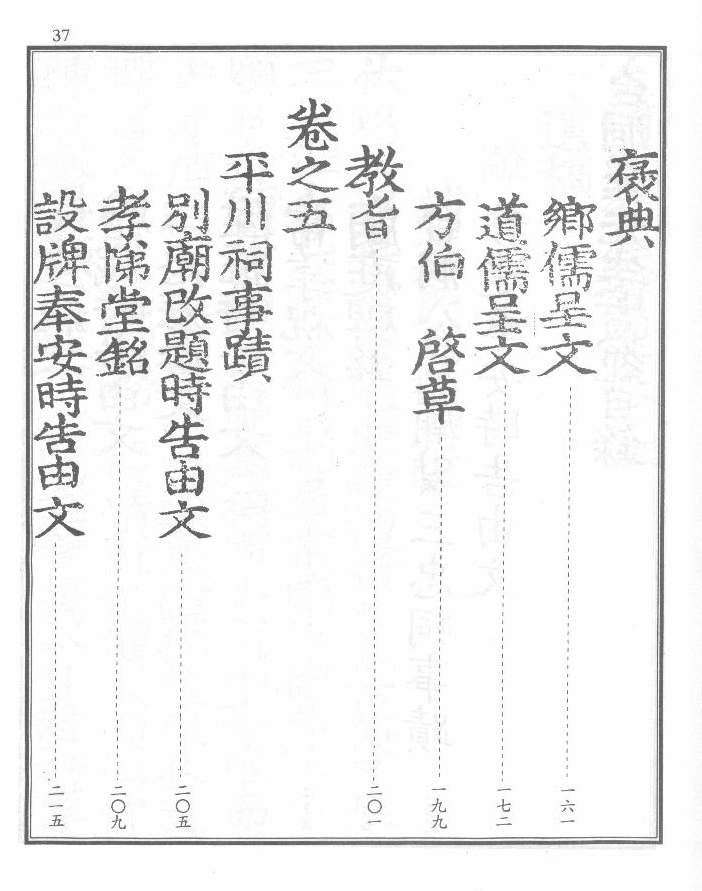 37
褒典
鄉儒呈文 一六一
道儒呈文 一七二
方伯 啓草 一九九
教旨 二〇一
卷之五
平川祠事蹟
別廟改題時告由文 二〇五
孝悌堂銘 二〇九
設牌奉安時告由文 二一五